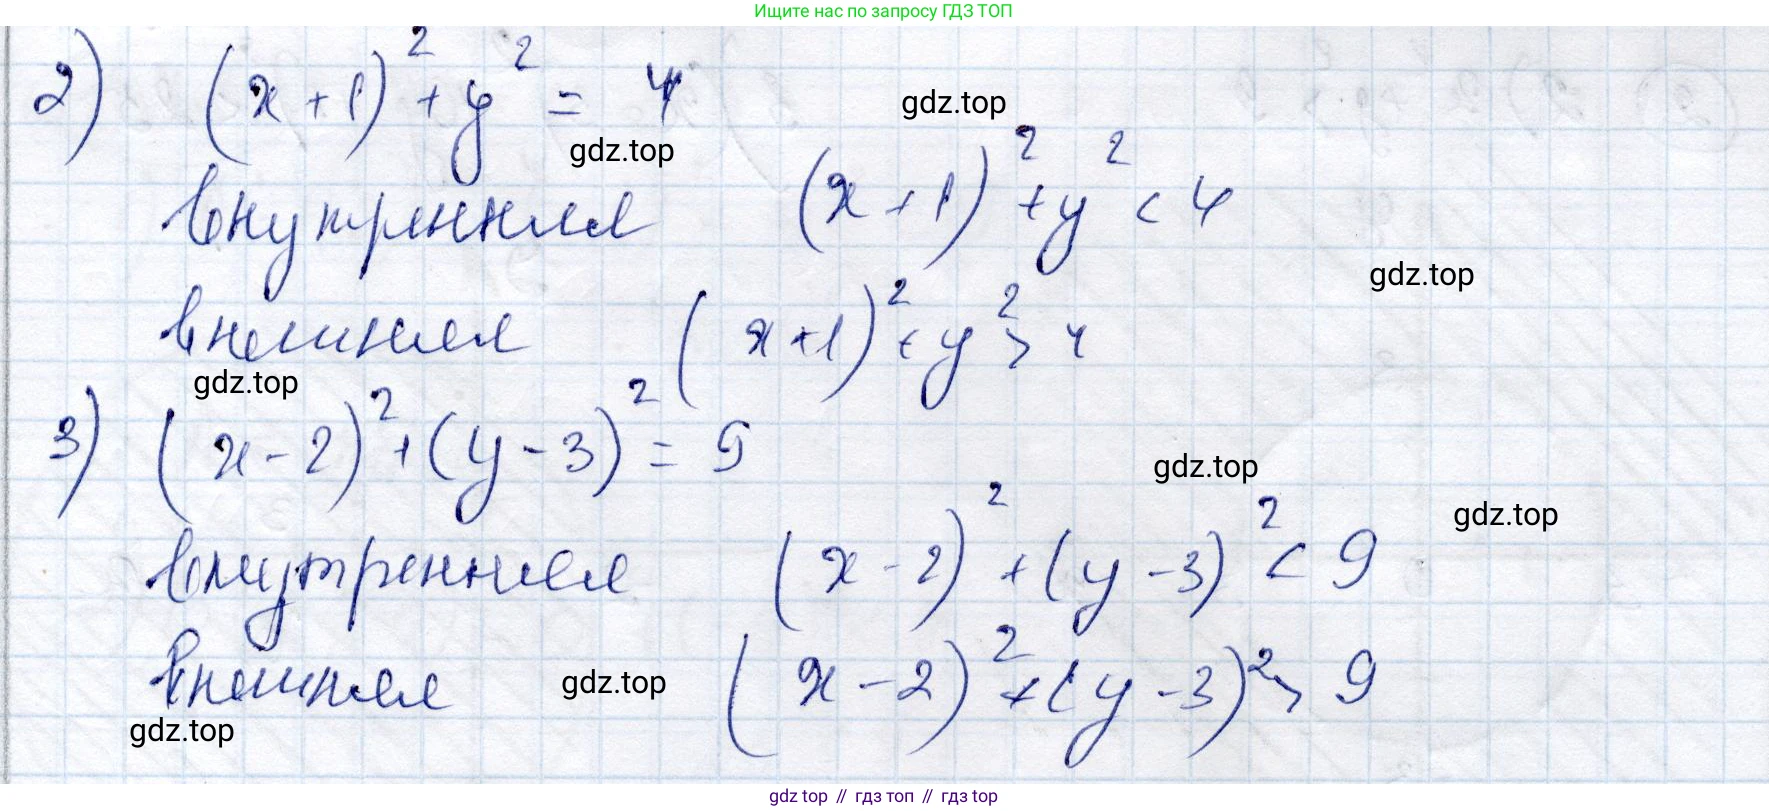 Ищите нас по запросу ГДЗ ТОП
2) (x+1)² + y² = 4
gdz.top
gdz.top
внутренняя (x+1)² + y² < 4
gdz.top
внешняя (x+1)² + y² > 4
gdz.top
3) (x-2)² + (y-3)² = 9
gdz.top
gdz.top
внутренняя (x-2)² + (y-3)² < 9
внешняя (x-2)² + (y-3)² > 9
gdz.top
gdz.top
gdz top // гдз топ // gdz top